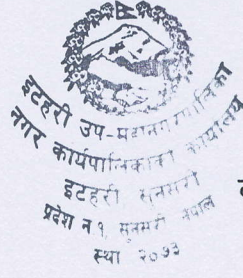 इटहरी उप-महानगरपालिका
नगर कार्यपालिकाको कार्यालय
इटहरी, सुनसरी
प्रदेश नं १, सुनसरी नेपाल
स्था २०७३